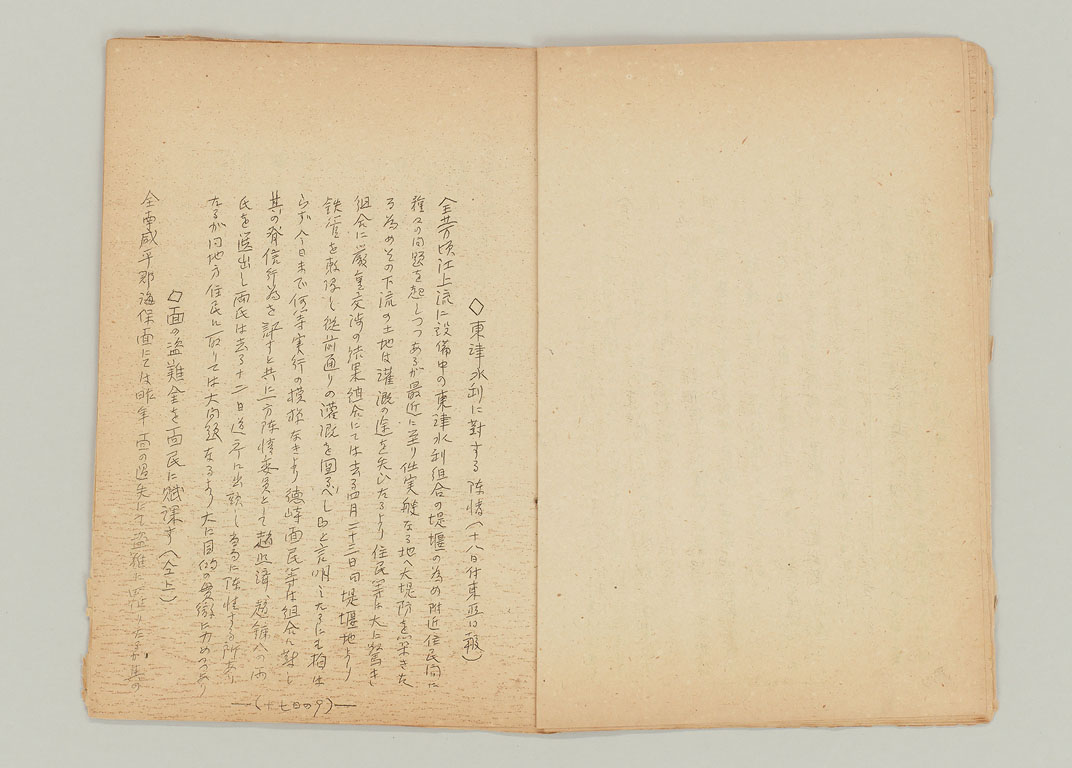 ◇東津水利に對する陳情(十八日付東亞日報)
全芳頃江上流に設備中の東津水利組合の堤堰の為め附近住民間に
種々の問題を起しつつあるが最近に至り此実般なる地へ大堤防を築きた
る為めその下流の土地は灌漑の途を失ひたるより住民等は大に驚き
組合に嚴重交渉の結果組合にては去る四月二十三日旬堤堰地より
鉄管を敷設し從前通りの灌漑を圖るべしと言明したるにも拘は
らず今日まで何等実行の模様なきより德峙面民等は組合に對し
其の背信行為を許すと共に一方陳情委員として趙
氏を選出し両氏は去る十二日道庁に出頭し當局に陳情する所あり
たるが同地方住民に取りては大問題なるより大に目的の貫徹に力めつつあり
◇面の盗難金を面民に賦課す(仝上)
全南咸平郡海保面にては昨年面の過失にて盗難に罹りたるが其の
―(十七日の9)―